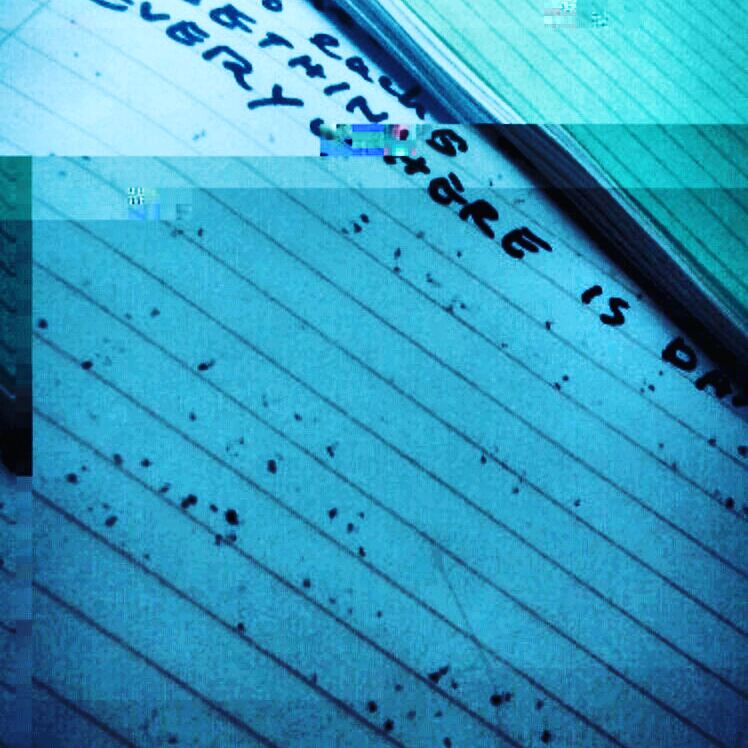 o each
ETHIN S
EVERYWHERE IS DA